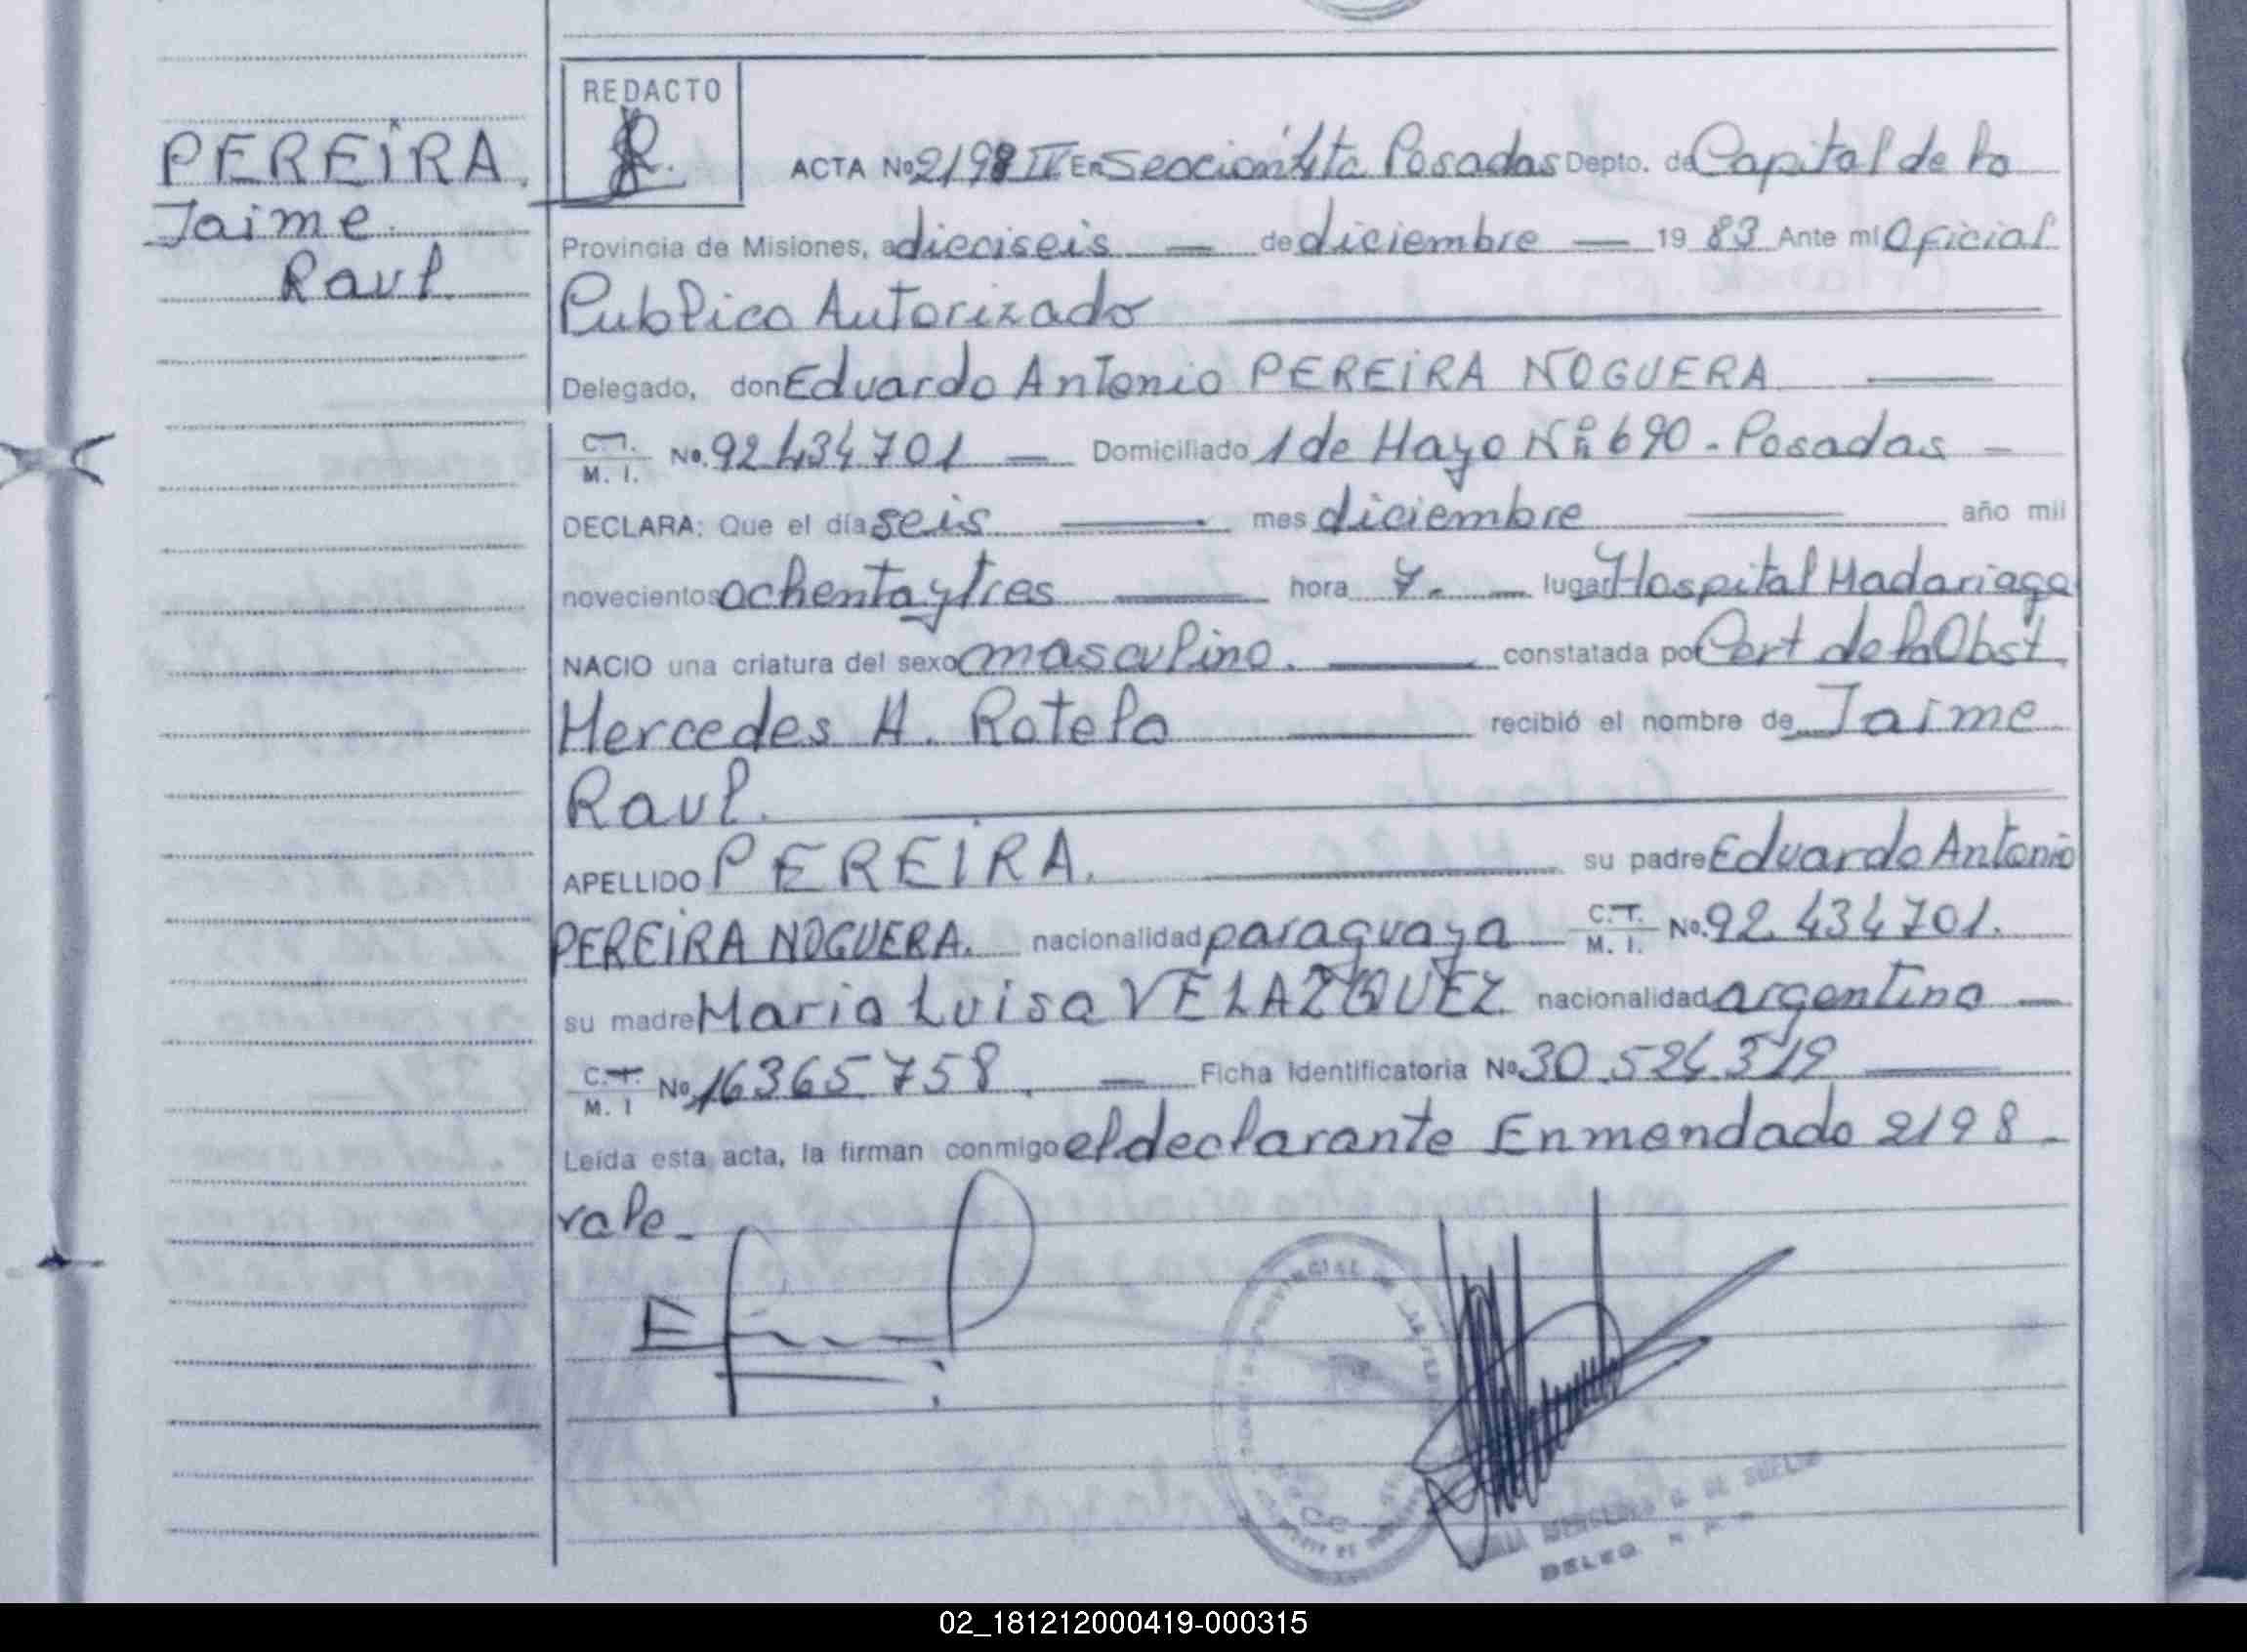 PEREIRA,
Jaime
Raul.
REDACTO
ACTA No 2198 IV En Seccion 4ta Posadas Depto. de Capital de la
Provincia de Misiones, a dieciseis — de diciembre — 19 83 Ante mí Oficial
Publico Autorizado
Delegado, don Eduardo Antonio PEREIRA NOGUERA
C.T. M. I. No. 92.434.701 — Domiciliado 1 de Mayo Nº 690 - Posadas —
DECLARA: Que el día seis — mes diciembre — año mil
novecientos ochenta y tres — hora 7. — lugar Hospital Madariaga
NACIO una criatura del sexo masculino. — constatada por Cert de la Obst.
Mercedes A. Rotela — recibió el nombre de Jaime
Raul.
APELLIDO PEREIRA. — su padre Eduardo Antonio
PEREIRA NOGUERA. nacionalidad paraguaya — C.T. M. I. No. 92.434.701.
su madre Maria Luisa VELAZQUEZ nacionalidad argentina —
C.T. M. I No. 16.365.758. — Ficha Identificatoria No 30.524.319 —
Leída esta acta, la firman conmigo el declarante Enmendado 2198.
vale-
DELEG.
02_181212000419-000315